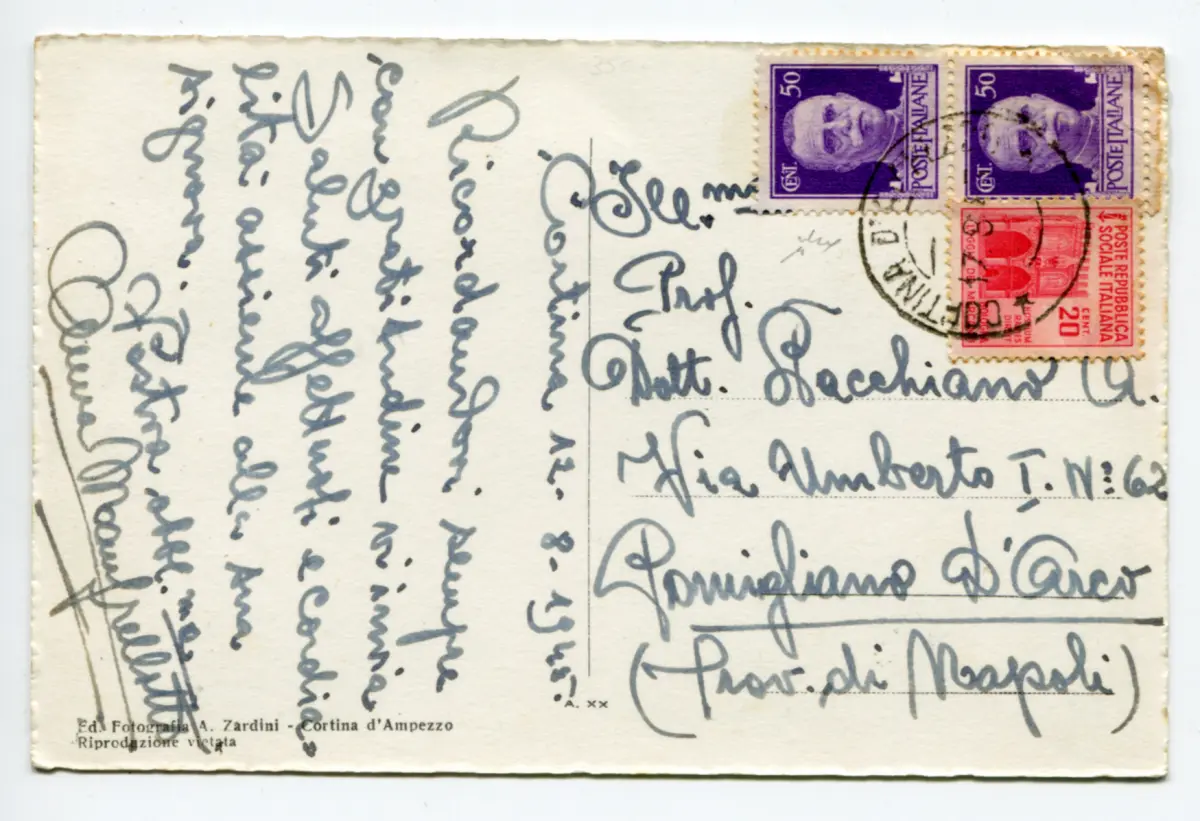 Cortina 12-8-1945.
Ricordandovi sempre
con gratitudine vi invia
Saluti affettuosi e cordia-
lità assieme alla sua
signora.
Vostra obbl.ma
Anna Manfrellotti
Ill.mo
Prof.
Dott. Pacchiano A.
Via Umberto I. N: 62
Pomigliano D'Arco
(Prov. di Napoli)
50
CENT.
POSTE ITALIANE
50
CENT.
POSTE ITALIANE
POSTE REPUBBLICA
SOCIALE ITALIANA
CENT.
20
CORTINA D'
17 8
A. XX
Ed. Fotografia A. Zardini - Cortina d'Ampezzo
Riproduzione vietata